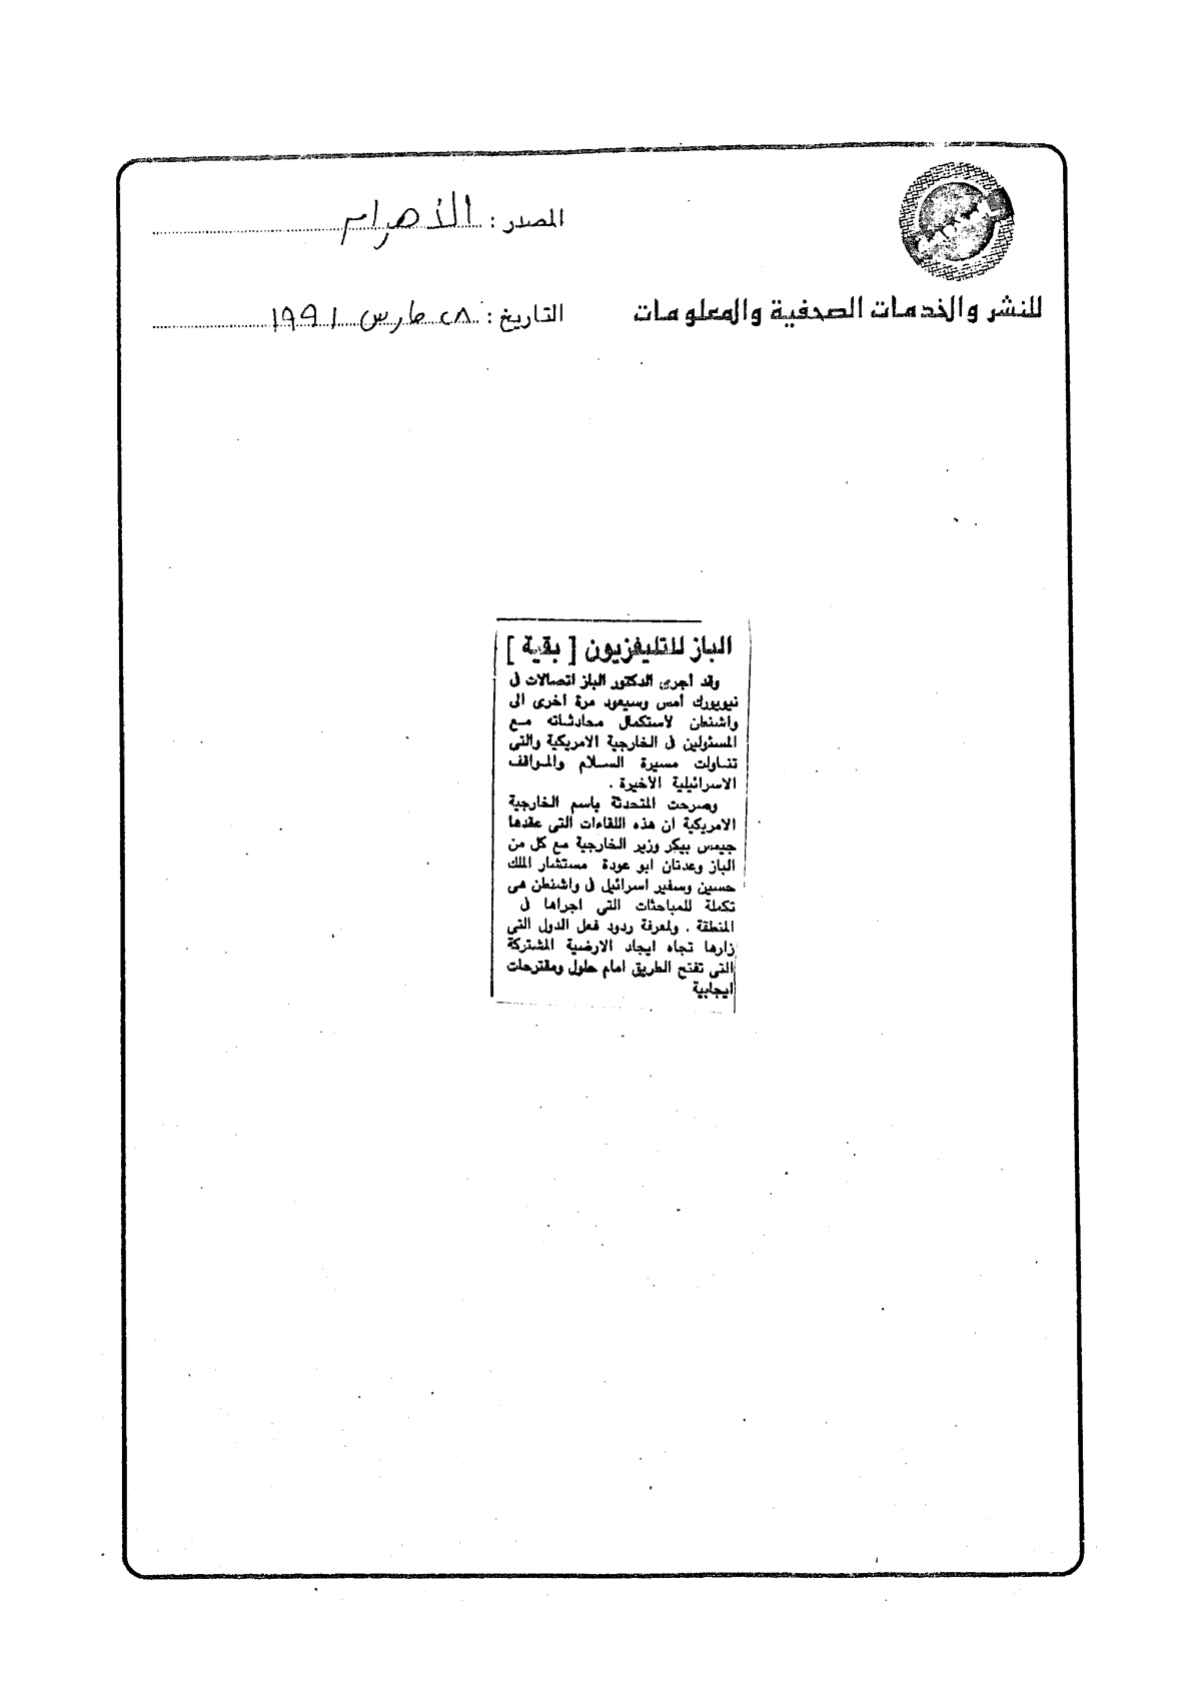 المصدر : الأهرام
للنشر والخدمات الصحفية والمعلومات
التاريخ : ٢٨ مارس ١٩٩١
الباز للتليفزيون [ بقية ]
وقد أجرى الدكتور الباز اتصالات فى
نيويورك أمس وسيعود مرة اخرى الى
واشنطن لاستكمال محادثاته مع
المسئولين فى الخارجية الامريكية والتى
تناولت مسيرة السلام والمواقف
الاسرائيلية الأخيرة .
وصرحت المتحدثة باسم الخارجية
الامريكية ان هذه اللقاءات التى عقدها
جيمس بيكر وزير الخارجية مع كل من
الباز وعدنان ابو عودة مستشار الملك
حسين وسفير اسرائيل فى واشنطن هى
تكملة للمباحثات التى اجراها فى
المنطقة . ولمعرفة ردود فعل الدول التى
زارها تجاه ايجاد الارضية المشتركة
التى تفتح الطريق امام حلول ومقترحات
ايجابية